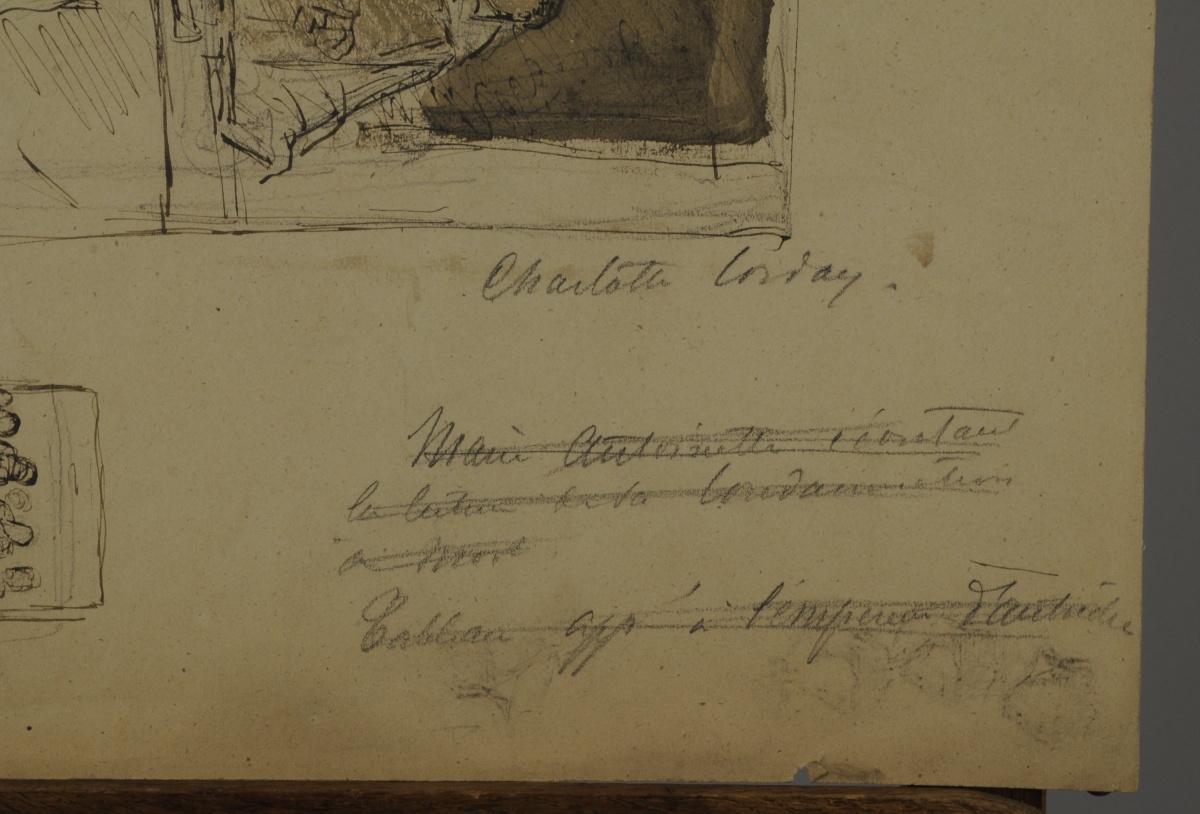 Charlotte Corday.
Marie Antoinette écoutant
la lecture de sa condamnation
à mort
Tableau app^t à l'empereur d'autriche